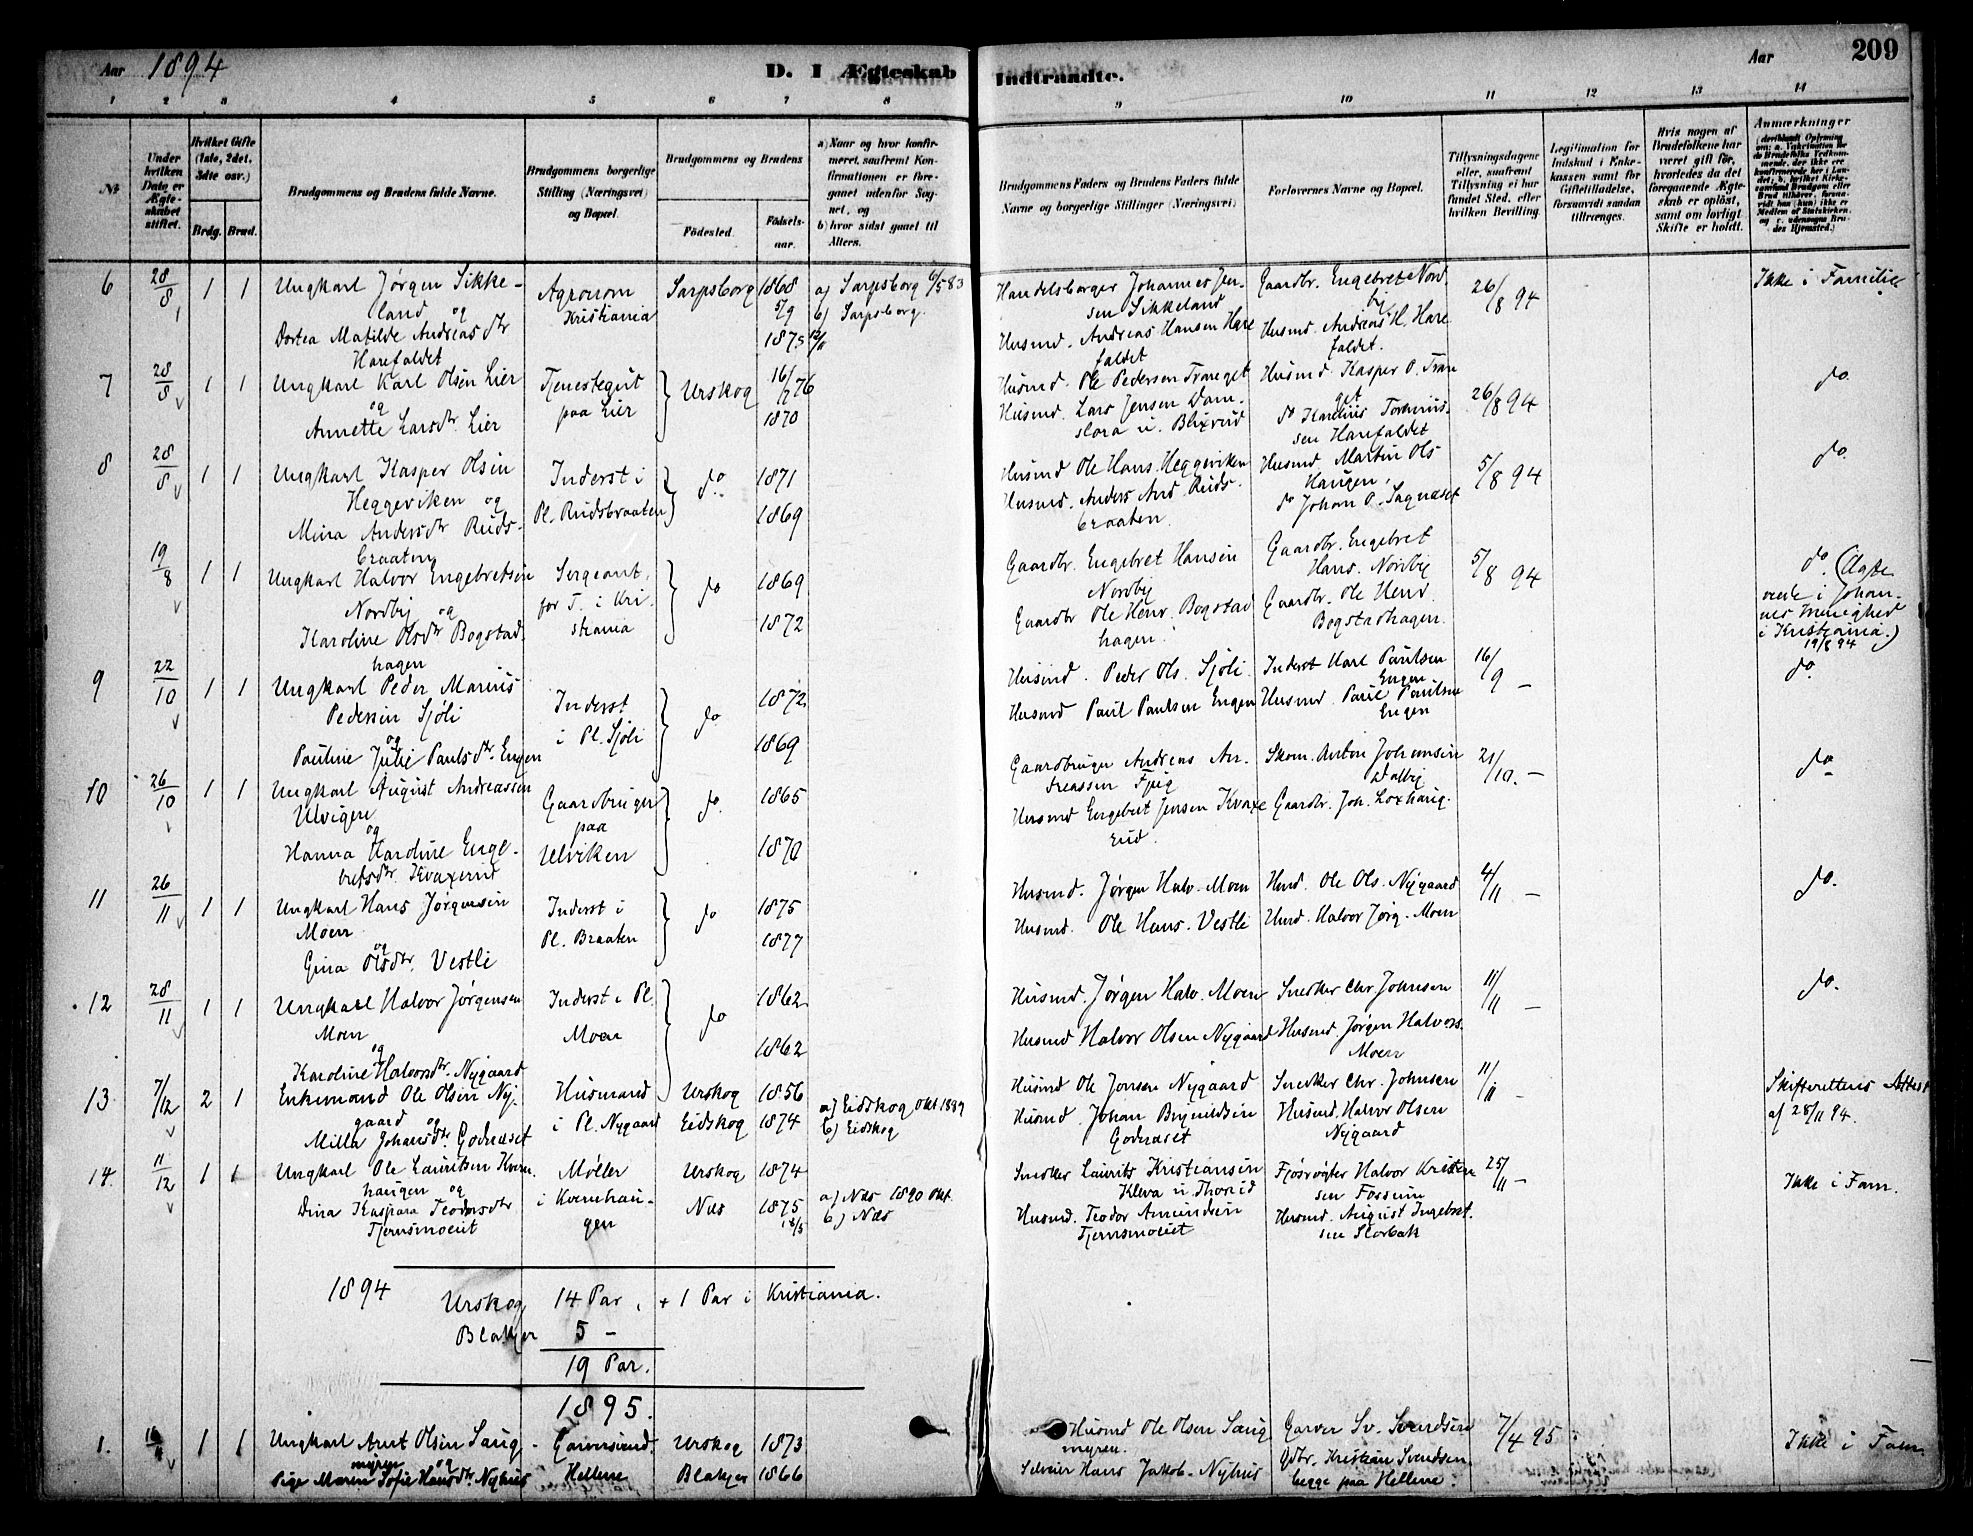 Aar 1894
D. I Ægteskab Indtraadte.
Aar
209
1 2 3 4 5 6 7 8 9 10 11 12 13 14
№
Under hvilken Dato er Ægteskabet stiftet.
Hvilket Gifte (1ste, 2det, 3die osv.)
Brdg. Brud.
Brudgommens og Brudens fulde Navne.
Brudgommens borgerlige Stilling (Næringsvei) og Bopæl.
Brudgommens og Brudens
Födested.
Födselsaar.
a) Naar og hvor konfirmeret, saafremt Konfirmationen er foregaaet udenfor Sognet, og
b) hvor sidst gaaet til Alters.
Brudgommens Faders og Brudens Faders fulde Navne og borgerlige Stillinger (Næringsvei)
Forlovernes Navne og Bopæl.
Tillysningsdagene eller, saafremt Tillysning ei har fundet Sted, efter hvilken Bevilling.
Legitimation for Indskud i Enkekassen samt for Giftetilladelse, forsaavidt saadan tiltrænges.
Hvis nogen af Brudefolkene har været gift för, hvorledes da det foregaaende Ægteskab er oplöst, samt om lovligt Skifte er holdt.
Anmærkninger
6 28/8 1 1 Ungkarl Jørgen Sikke-
land og
Dortea Matilde Andreasdtr
Harefaldet
Agronom
Kristiania
Sarpsborg 1868
5/9
1875 12/11
a) Sarpsborg 6/5 83
b) Sarpsborg.
Handelsborger Johannes Jen-
sen Sikkeland
Husmd. Andreas Hansen Hare
faldet
Gaardbr. Engebret Nord.
by
Husmd. Andreas H. Hare
faldet.
26/8 94
Ikke i Familie
7 28/8 1 1 Ungkarl Karl Olsen Lier
og
Annette Larsdtr. Lier
Tjenestegut
paa Lier
Urskog
16/7 76
1870
Husmd. Ole Pedersen Tranget
Husmd. Lars Jensen Dam-
slora u. Blixrud
Husmd. Kasper O. Tran
get
do Karelius Tommis-
sen Harefaldet
26/8 94
do.
8 28/8 1 1 Ungkarl Kasper Olsen
Heggeviken og
Mina Andersdtr Ruds-
braaten
Inderst i
Pl. Rudsbraaten
do
1871
1869
Husmd Ole Hans. Heggeviken
Husmd. Anders And. Ruds-
braaten.
Husmd Martin Ols
Haugen,
do Johan O. Sagnæset
5/8 94
do.
19/8 1 1 Ungkarl Halvor Engebretsen
Nordby og
Karoline Olsdtr Bogstad
hagen
Sergeant,
for T. i Kri-
stiania
do
1869
1872
Gaardbr. Engebret Hansen
Nordby
Gaardbr Ole Henr. Bogstad
hagen.
Gaardbr. Engebret
Hans. Nordby
Gaardbr. Ole Henr.
Bogstadhagen.
5/8 94
do. (Ægte
viede i Johan-
nes Menighed
i Kristiania.)
19/8 94
9 22/10 1 1 Ungkarl Peder Marius
Pedersen Sjøli
og
Pauline Julie Paulsdtr. Engen
Inderst
i Pl. Sjøli
do
1872
1869
Husmd. Peder Ols. Sjøli
Husmd Paul Paulsen Engen
Inderst Karl Paulsen
Engen
Husmd. Paul Paulsen
Engen
16/9 –
do.
10 26/10 1 1 Ungkarl August Andreassen
Ulvigen
og
Hanna Karoline Enge-
bretsdtr. Kvaxerud
Gaardbruger
paa
Ulviken
do.
1865
1870
Gaardbruger Andreas An-
dreassen Fjeig
Husmd Engebret Jensen Kvaxe
rud.
Skom. Anton Johansen
Dalby
Gaardbr. Joh. Loxhaug.
21/10. –
do
11 26/11 1 1 Ungkarl Hans Jørgensen
Moen
og
Gina Olsdtr. Vestli
Inderst i
Pl. Braaten
do
1875
1877
Husmd. Jørgen Halv. Moen
Husmd. Ole Hans. Vestli
Husd. Ole Ols. Nygaard
Husd. Halvor Jörg. Moen
4/11 –
do.
12 28/11 1 1 Ungkarl Halvor Jørgensen
Moen
og
Karoline Halvorsdtr. Nygaard
Inderst i Pl.
Moen
do
1862
1862
Husmd. Jørgen Halv. Moen
Husmd Halvor Olsen Nygaard
Snedker Chr Johnsen
Husmd. Jørgen Halvors.
Moen
11/11 –
do.
13 7/12 2 1 Enkemand Ole Olsen Ny-
gaard og
Milla Johansdtr. Godnæset
Husmand
i Pl. Nygaard
Urskog 1856
Eidskog 1874
a) Eidskog Okt 1889
b) Eidskog
Husmd Ole Jonsen Nygaard
Husmd. Johan Brynildsen
Godnæset
Snedker Chr. Johnsen
Husmd. Halvor Olsen
Nygaard
11/11 –
Skifterettens Attest
af 28/11 94.
14. 11/12 1 1 Ungkarl Ole Lauritsen Kvern.
haugen og
Dina Kaspara Teodorsdtr
Tjernsmoeiet
Møller
i Kvernhau-
gen
Urskog 1874
Næs 1875
18/3
a) Næs 1890 Okt.
b) Næs
Snedker Laurits Kristiansen
Kleva u. Thorid
Husmd. Teodor Amundsen
Tjernsmoeiet
Fjøsrøgter Halvor Kristen
sen Fossum
Husmd. August Ingebret.
sen Storbak
25/11 –
Ikke i Fam.
1894
Urskog 14 Par, + 1 Par i Kristiania.
Blakjer 5 –
19 Par.
1895.
1. 16/4 1 1 Ungkarl Arnt Olsen Saug-
myren og
Pige Maren Sofie Hansdtr. Nyhus
Garversvend.
Hellene
Urskog 1873
Blakjer 1866
Husmd Ole Olsen Saug
myren.
Selveier Hans Jakob. Nyhus
Garver Sv. Svendsen
Gdbr. Kristian Svendsen
begge paa Hellene.
7/4 95
Ikke i Fam.